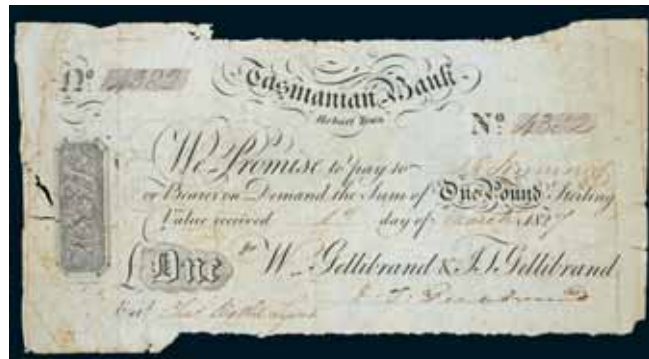 Nº 4382
Tasmanian Bank
Hobart Town
Nº 4382
We Promise to pay to
or Bearer on Demand the Sum of One Pound Sterling
Value received 1st day of March 1827
£ One for W. Gellibrand & J.T. Gellibrand
Entd